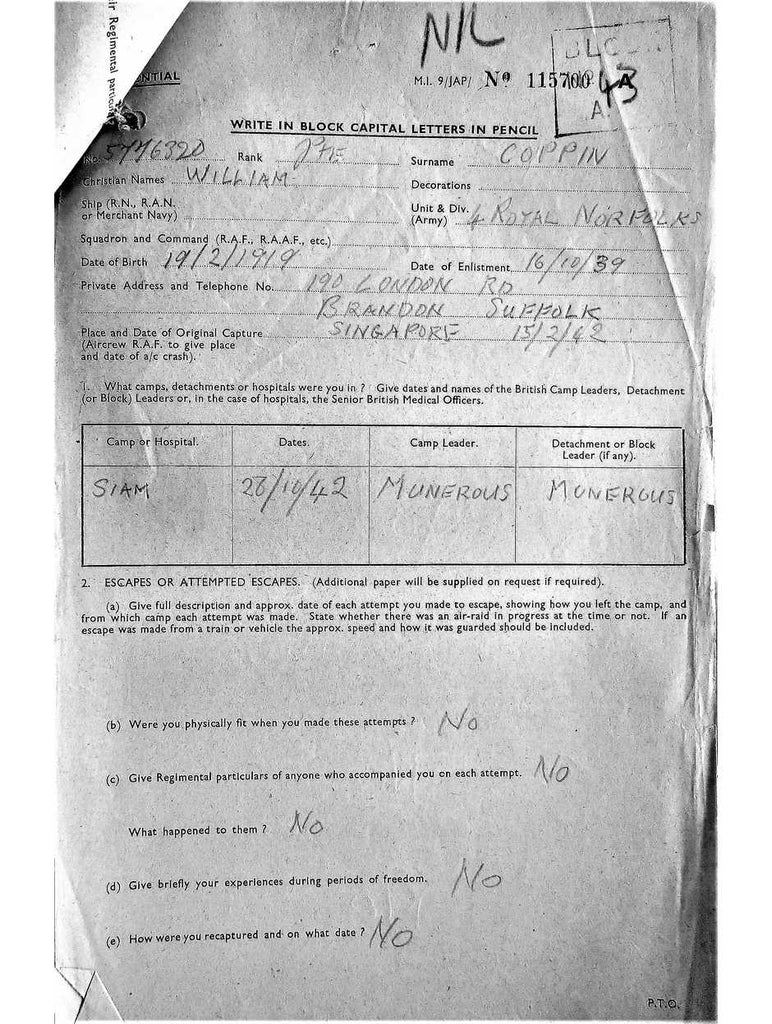 ir Regimental particu
NTIAL
NIL
M.I. 9/JAP/ Nº 115700 A
BLOC
43
A
WRITE IN BLOCK CAPITAL LETTERS IN PENCIL
No. 5776320 Rank PTE Surname COPPIN
Christian Names WILLIAM Decorations
Ship (R.N., R.A.N. or Merchant Navy) Unit & Div. (Army) 4 ROYAL NORFOLKS
Squadron and Command (R.A.F., R.A.A.F., etc.)
Date of Birth 19/2/1919 Date of Enlistment 16/10/39
Private Address and Telephone No. 190 LONDON RD
BRANDON SUFFOLK
Place and Date of Original Capture SINGAPORE 15/2/42
(Aircrew R.A.F. to give place
and date of a/c crash).
1. What camps, detachments or hospitals were you in ? Give dates and names of the British Camp Leaders, Detachment
(or Block) Leaders or, in the case of hospitals, the Senior British Medical Officers.
Camp or Hospital. Dates. Camp Leader. Detachment or Block Leader (if any).
SIAM 28/10/42 MUNEROUS MUNEROUS
2. ESCAPES OR ATTEMPTED ESCAPES. (Additional paper will be supplied on request if required).
(a) Give full description and approx. date of each attempt you made to escape, showing how you left the camp, and
from which camp each attempt was made. State whether there was an air-raid in progress at the time or not. If an
escape was made from a train or vehicle the approx. speed and how it was guarded should be included.
(b) Were you physically fit when you made these attempts ? NO
(c) Give Regimental particulars of anyone who accompanied you on each attempt. NO
What happened to them ? NO
(d) Give briefly your experiences during periods of freedom. NO
(e) How were you recaptured and on what date ? NO
P.T.O.